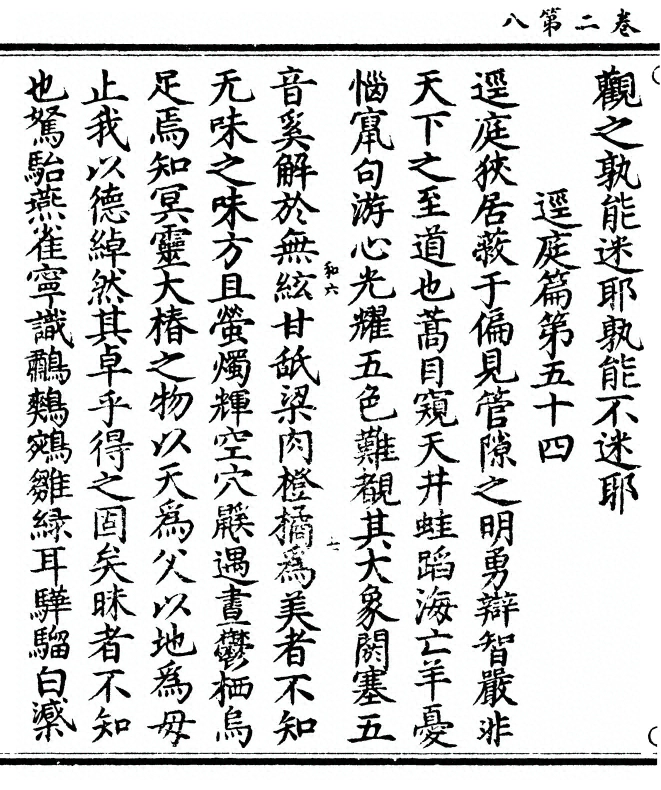 卷二第八
觀之孰能迷耶孰能不迷耶
逕庭篇第五十四
逕庭狹居蔽于偏見管隙之明勇辯智嚴非
天下之至道也蒿目窺天井蛙蹈海亡羊憂
惱甯句游心光耀五色難覩其大象閼塞五
和六
七
音奚解於無絃甘䑛梁肉橙橘爲美者不知
无味之味方且螢燭輝空穴鼷遇晝鬱栖烏
足焉知冥靈大椿之物以天爲父以地爲母
止我以德綽然其卓乎得之固矣昧者不知
也駑駘燕雀寧識鸕鷀鵷雛綠耳驊騮白㶁